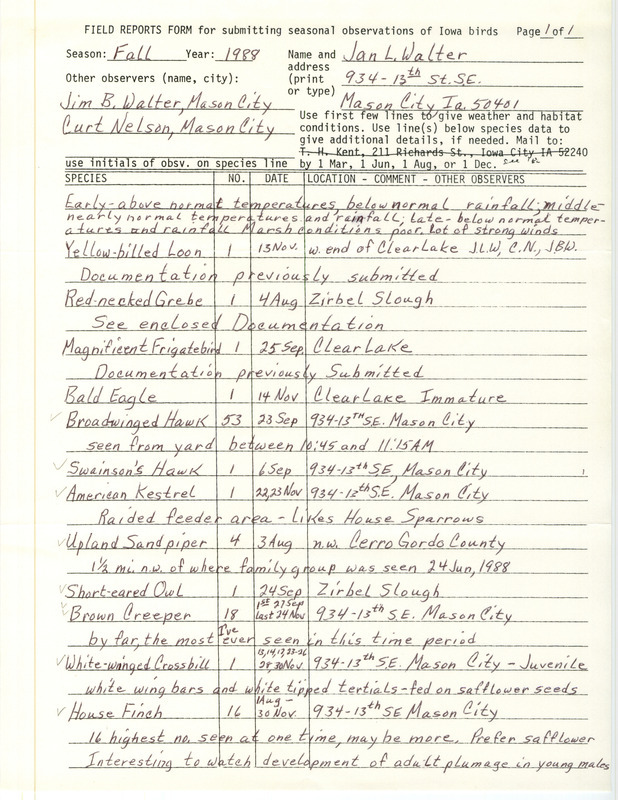 FIELD REPORTS FORM for submitting seasonal observations of Iowa birds Page 1 of 1
Season: Fall Year: 1988 Name and Jan L. Walter
address
Other observers (name, city): (print 934-13th St. S.E.
or type)
Jim B. Walter, Mason City Mason City Ia. 50401
Curt Nelson, Mason City Use first few lines to give weather and habitat
conditions. Use line(s) below species data to
give additional details, if needed. Mail to:
T. H. Kent, 211 Richards St., Iowa City IA 52240
use initials of obsv. on species line by 1 Mar, 1 Jun, 1 Aug, or 1 Dec.
SPECIES NO. DATE LOCATION - COMMENT - OTHER OBSERVERS
Early-above normal temperatures, below normal rainfall; middle-
nearly normal temperatures and rainfall; late-below normal temper-
atures and rainfall Marsh conditions poor. Lot of strong winds
Yellow-billed Loon 1 13 Nov. w. end of Clear Lake J.L.W, C.N., JBW.
Documentation previously submitted
Red-necked Grebe 1 4 Aug Zirbel Slough
See enclosed Documentation
Magnificent Frigatebird 1 25 Sep Clear Lake
Documentation previously Submitted
Bald Eagle 1 14 Nov Clear Lake Immature
Broadwinged Hawk 53 23 Sep 934-13TH SE. Mason City
seen from yard between 10:45 and 11:15 AM
Swainson's Hawk 1 6 Sep 934-13th SE, Mason City
American Kestrel 1 22,23 Nov 934-13th S.E. Mason City
Raided feeder area - likes House Sparrows
Upland Sandpiper 4 3 Aug n.w. Cerro Gordo County
1½ mi. n.w. of where family group was seen 24 Jun, 1988
Short-eared Owl 1 24 Sep Zirbel Slough
Brown Creeper 18 1st 27 Sep last 24 Nov 934-13th S.E. Mason City
by far, the most I've ever seen in this time period
White-winged Crossbill 1 934-13th SE. Mason City - Juvenile
white wing bars and white tipped tertials-fed on safflower seeds
House Finch 16 1 Aug - 30 Nov. 934-13th SE Mason City
16 highest no. seen at one time, may be more. Prefer safflower
Interesting to watch development of adult plumage in young males